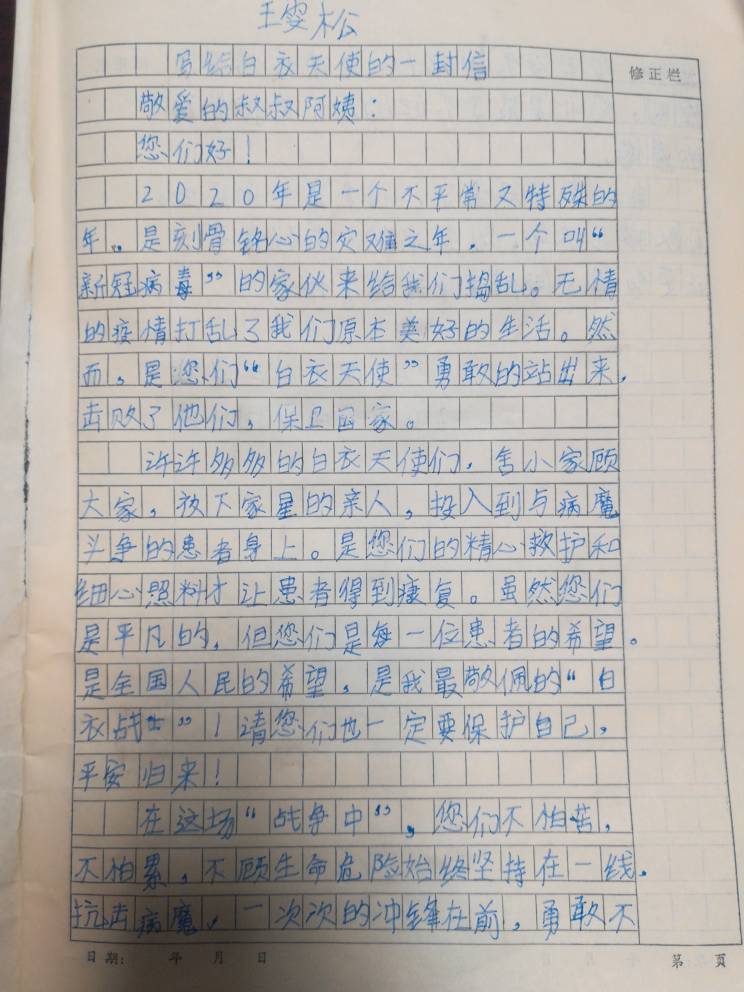 王雯松
写给白衣天使的一封信
修正栏
敬爱的叔叔阿姨：
您们好！
2020年是一个不平常又特殊的
年，是刻骨铭心的灾难之年，一个叫“
新冠病毒”的家伙来给我们捣乱。无情
的疫情打乱了我们原本美好的生活。然
而，是您们“白衣天使”勇敢的站出来，
击败了他们，保卫国家。
许许多多的白衣天使们，舍小家顾
大家，放下家星的亲人，投入到与病魔
斗争的患者身上。是您们的精心救护和
细心照料才让患者得到康复。虽然您们
是平凡的，但您们是每一位患者的希望。
是全国人民的希望，是我最敬佩的“白
衣战士”！请您们也一定要保护自己，
平安归来！
在这场“战争中”，您们不怕苦，
不怕累，不顾生命危险始终坚持在一线，
抗击病魔，一次次的冲锋在前，勇敢不
日期： 年 月 日
第 页